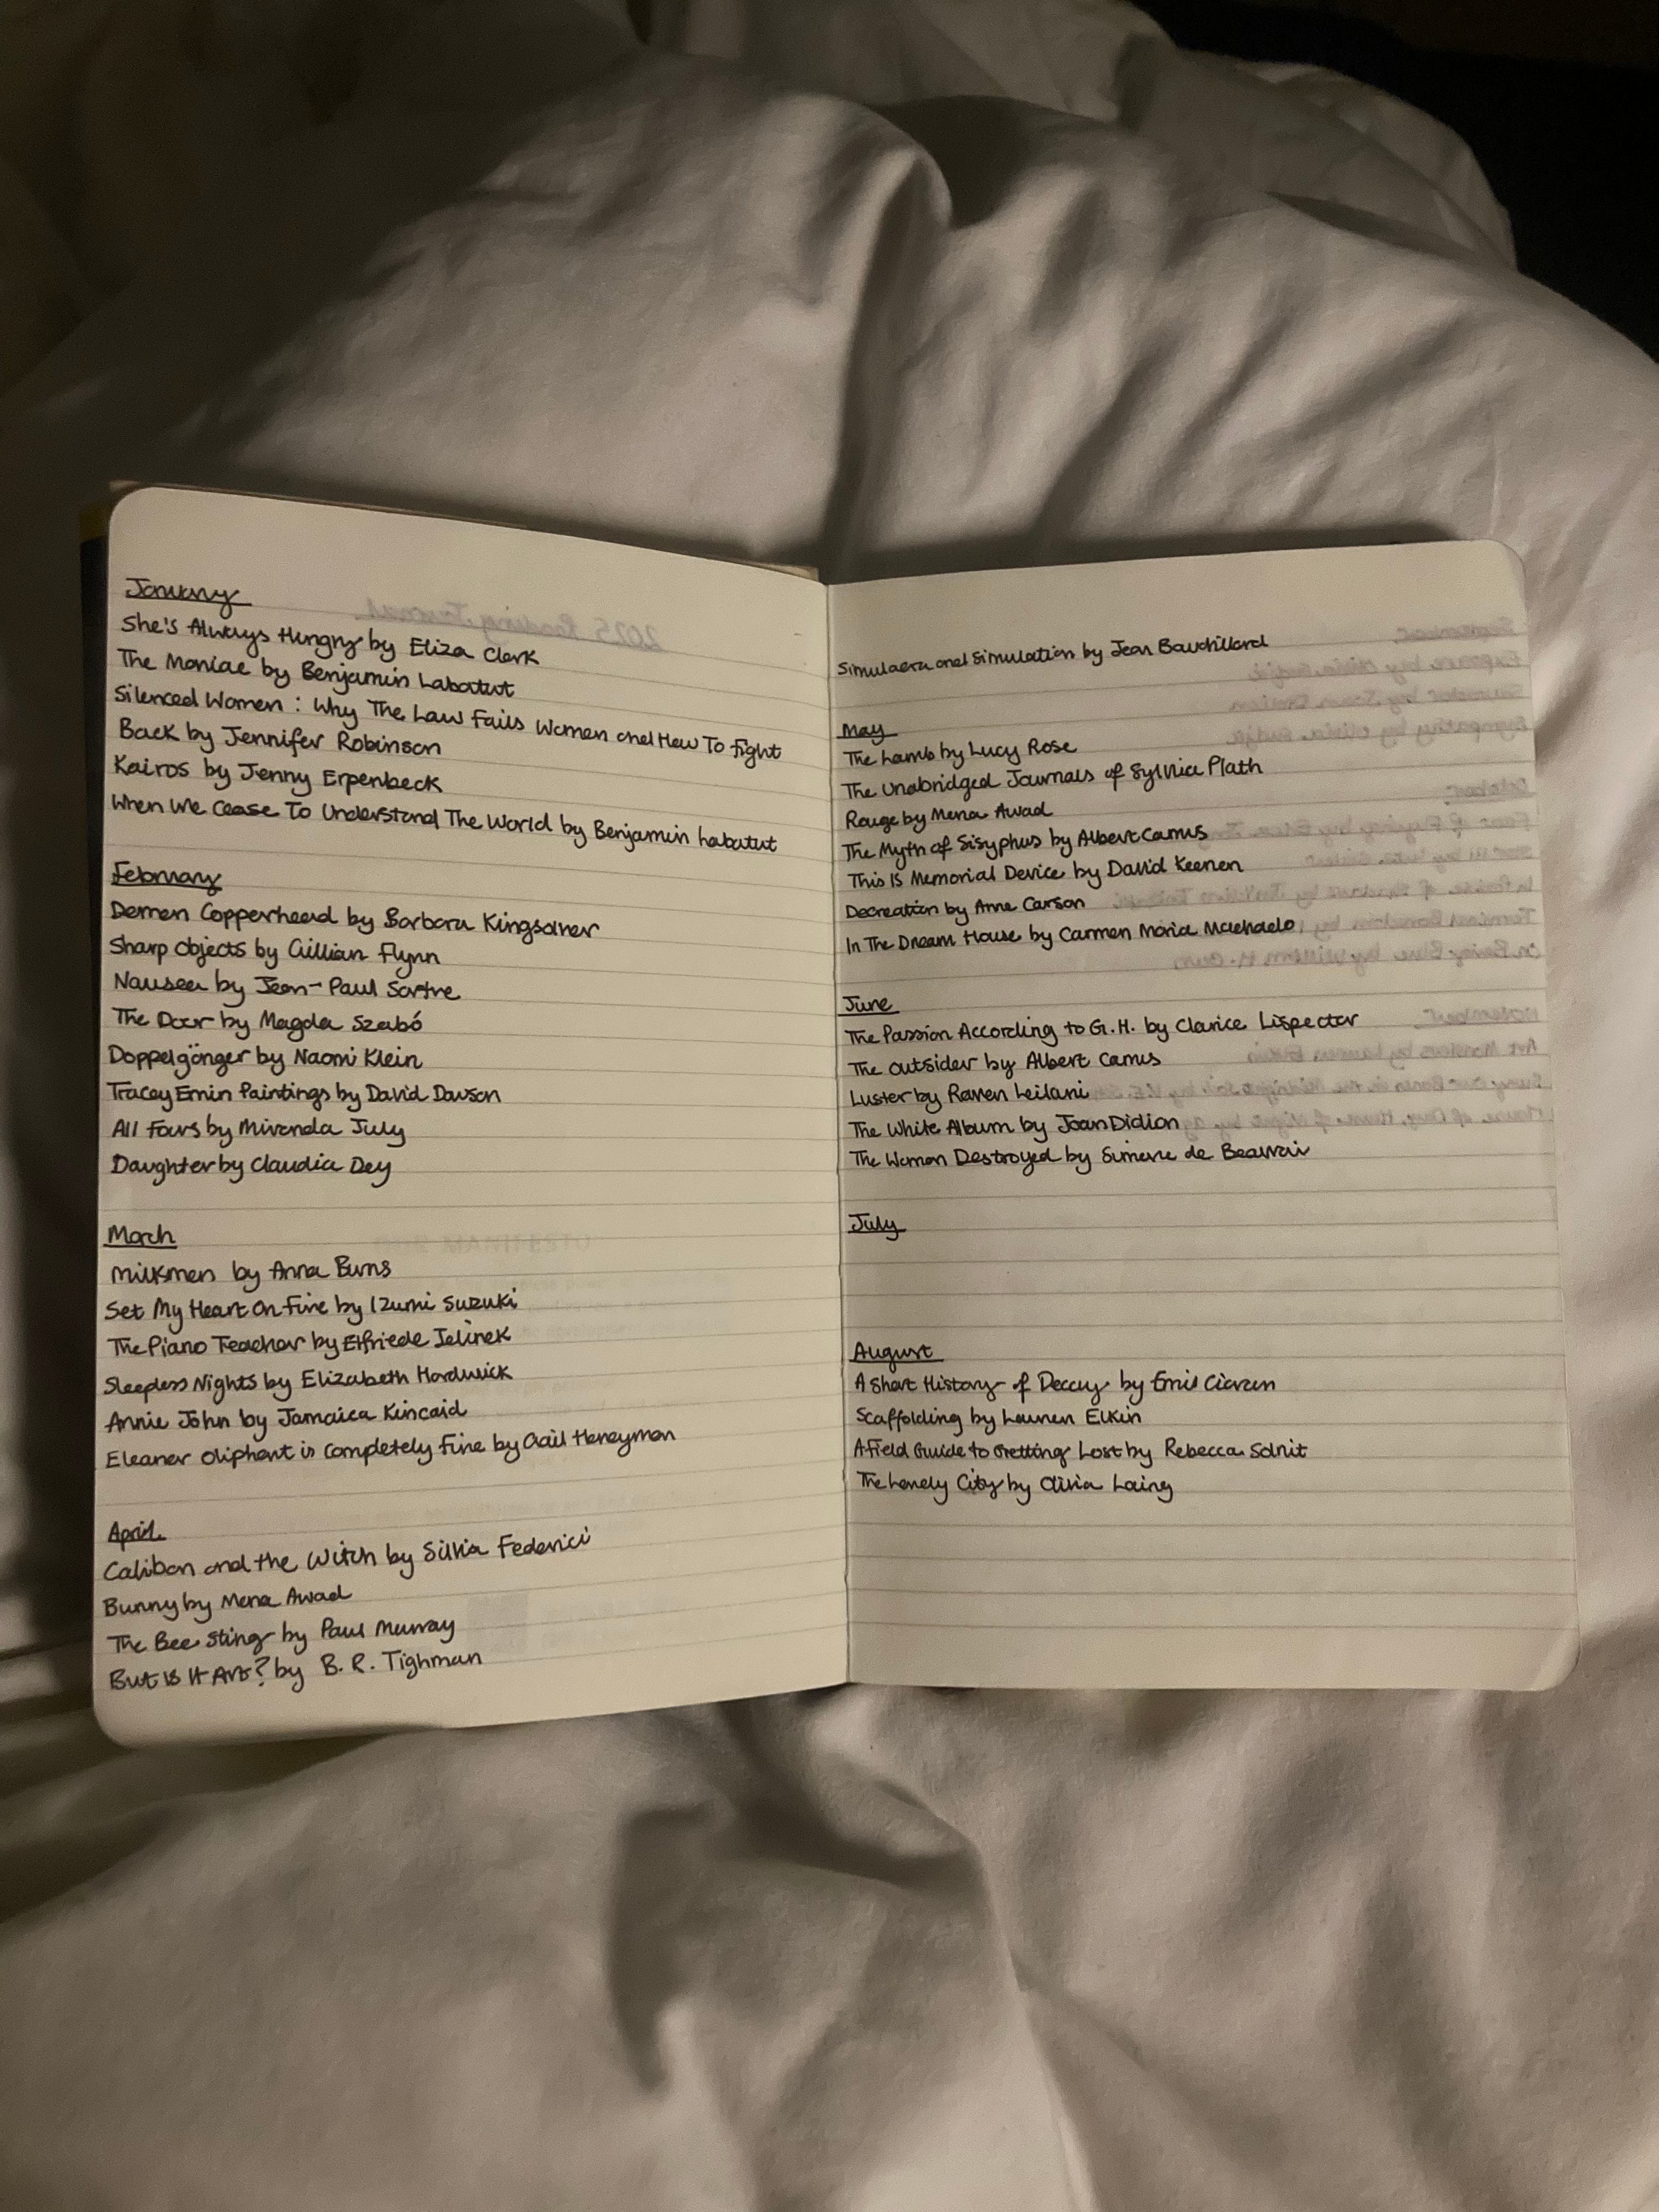 January
She's Always Hungry by Eliza Clark
The Maniac by Benjamin Labatut
Silenced Women : Why The Law Fails Women and How To Fight
Back by Jennifer Robinson
Kairos by Jenny Erpenbeck
When We Cease To Understand The World by Benjamin Labatut
February
Demon Copperhead by Barbara Kingsolver
Sharp Objects by Gillian Flynn
Nausea by Jean-Paul Sartre
The Door by Magda Szabó
Doppelgänger by Naomi Klein
Tracey Emin Paintings by David Dawson
All Fours by Miranda July
Daughter by Claudia Dey
March
Milkman by Anna Burns
Set My Heart On Fire by Izumi Suzuki
The Piano Teacher by Elfriede Jelinek
Sleepless Nights by Elizabeth Hardwick
Annie John by Jamaica Kincaid
Eleanor Oliphant is Completely Fine by Gail Honeyman
April
Caliban and the Witch by Silvia Federici
Bunny by Mona Awad
The Bee Sting by Paul Murray
But Is It Art? by B. R. Tighman
Simulacra and Simulation by Jean Baudrillard
May
The Lamb by Lucy Rose
The Unabridged Journals of Sylvia Plath
Rouge by Mona Awad
The Myth of Sisyphus by Albert Camus
This Is Memorial Device by David Keenan
Decreation by Anne Carson
In The Dream House by Carmen Maria Machado
June
The Passion According to G.H. by Clarice Lispector
The Outsider by Albert Camus
Luster by Raven Leilani
The White Album by Joan Didion
The Woman Destroyed by Simone de Beauvoir
July
August
A Short History of Decay by Emil Cioran
Scaffolding by Lauren Elkin
A Field Guide to Getting Lost by Rebecca Solnit
The Lonely City by Olivia Laing